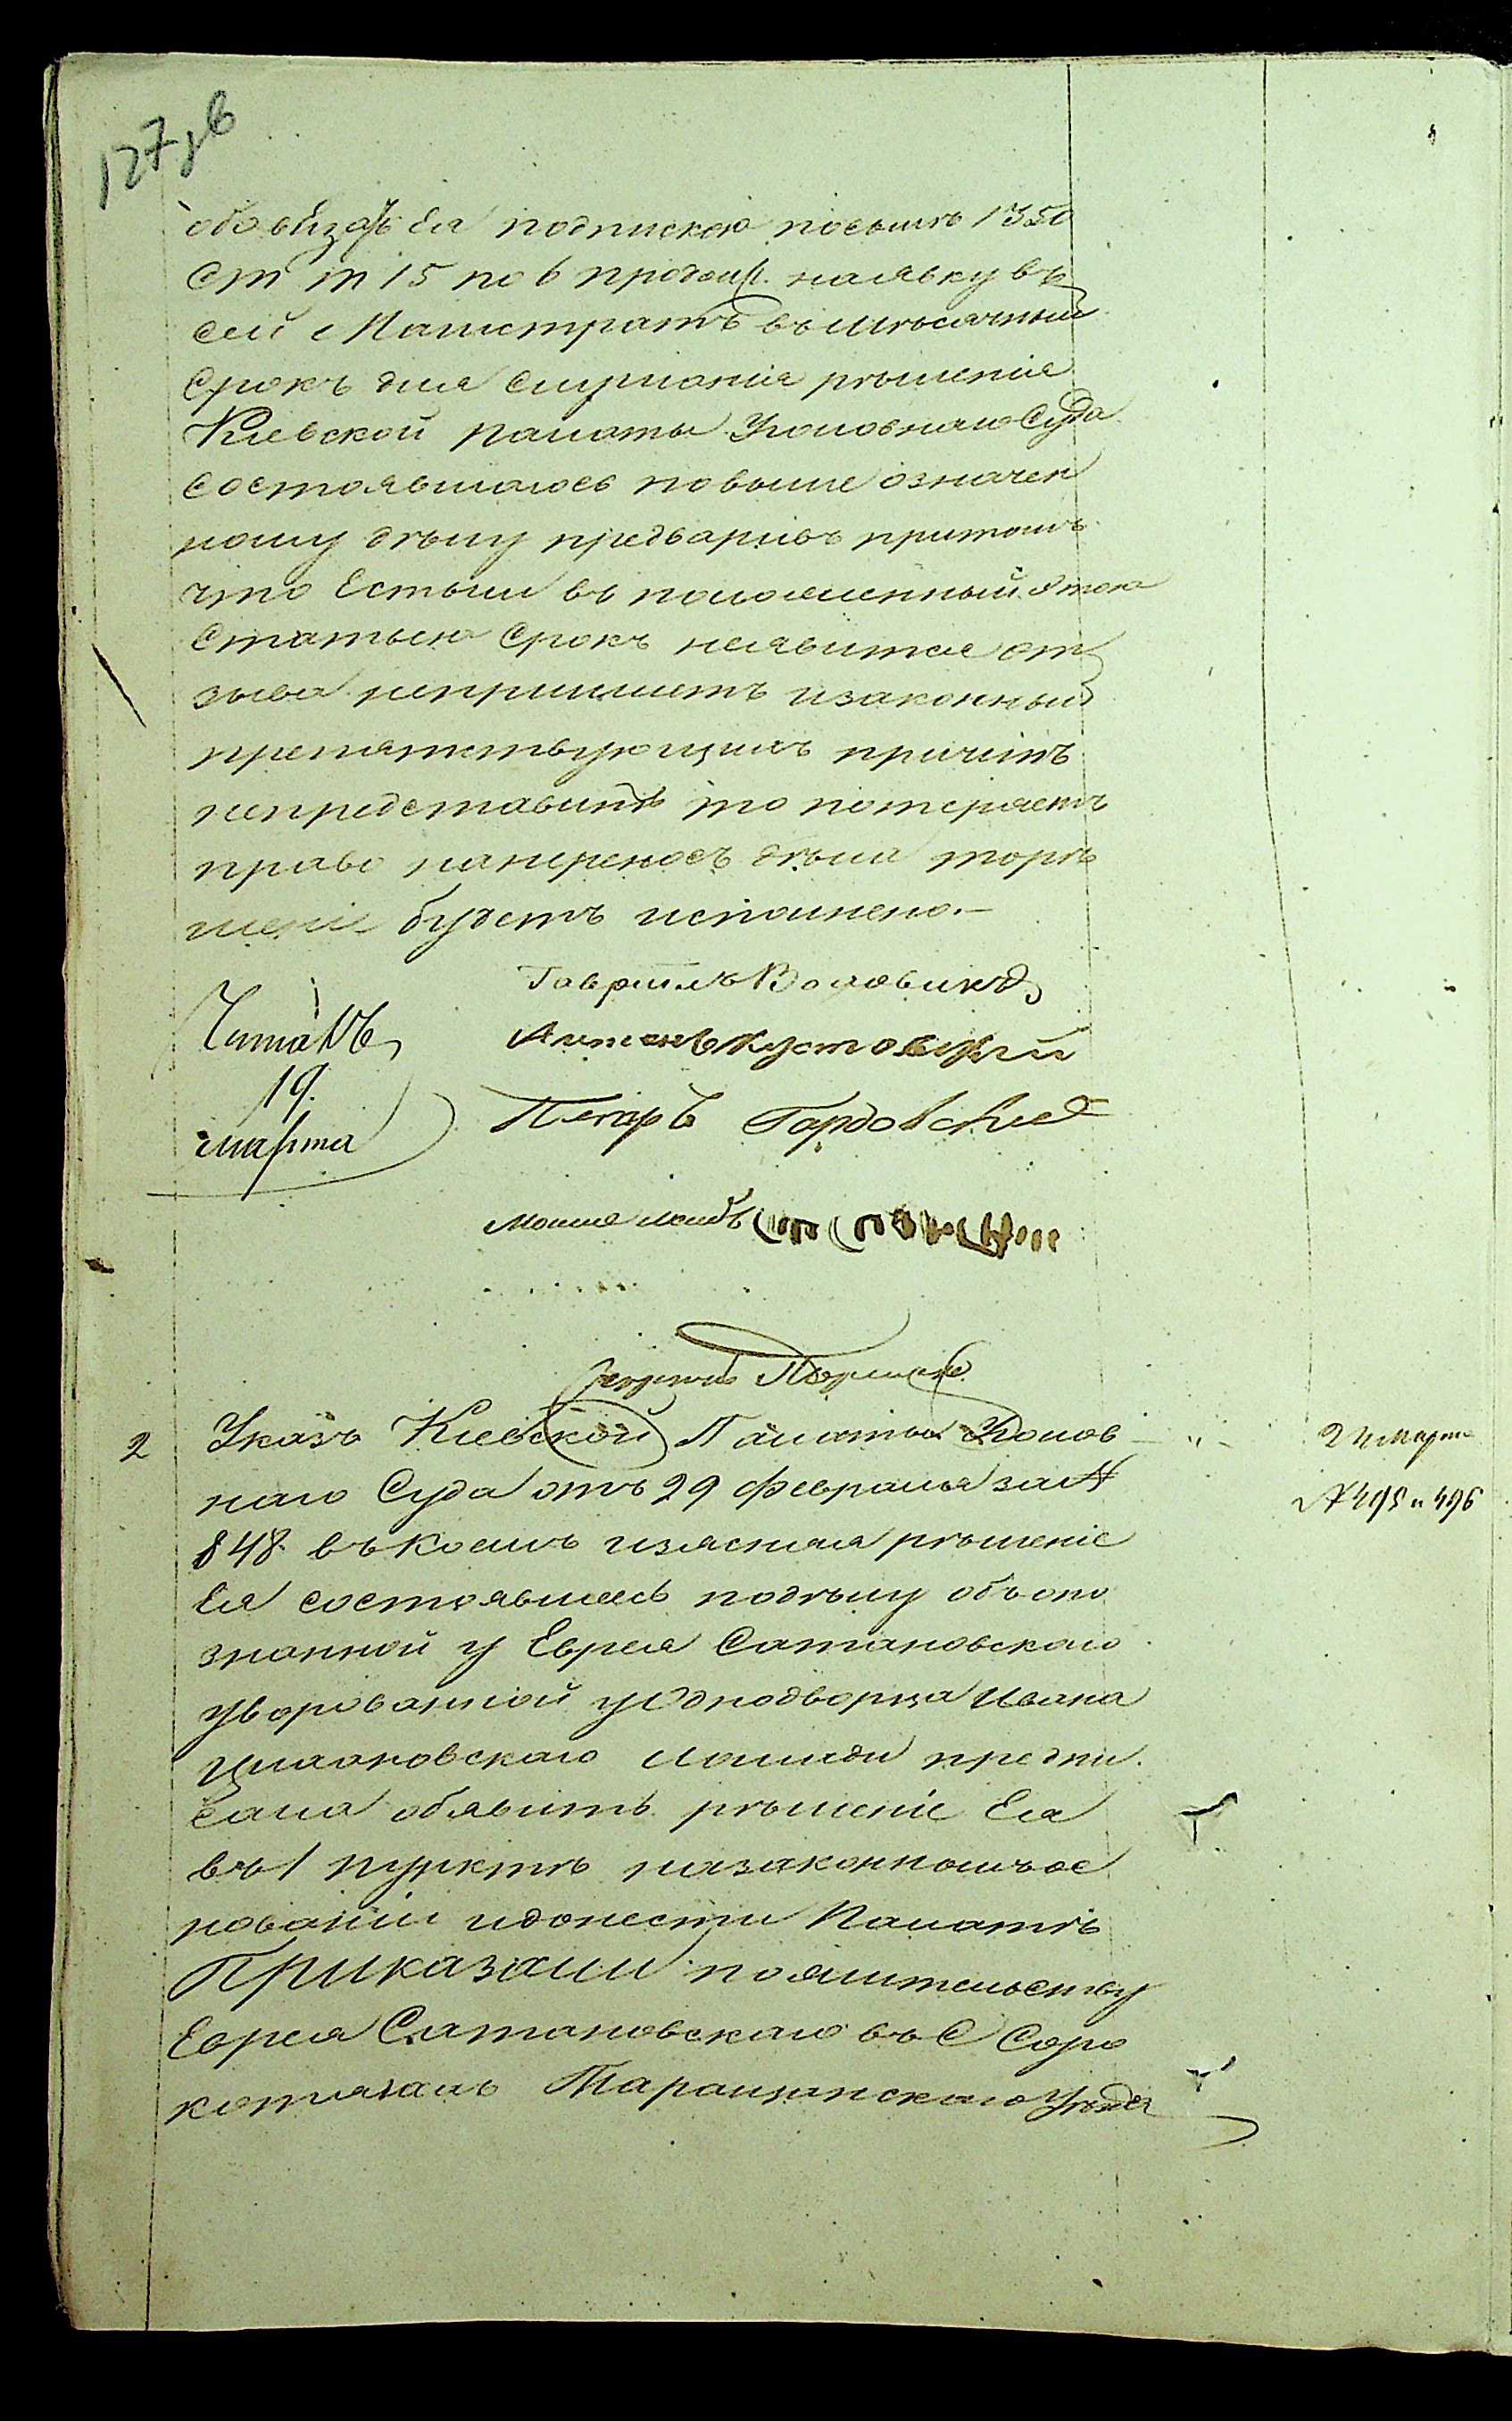 127 об
обовязать Ея подпискою посылѣ 1350
ст т 15 по 6 продол. наявку въ
сей Магистратъ въ мѣсячный
срокъ для слушанія рѣшенія
Кіевской палаты Уголовнаго Суда
состоявшагося по выше означен
ному дѣлу предваривъ притомъ
что Естьли въ положенный этою
статьею срокъ неявится от
зыва непришлетъ изаконныхъ
препятствующихъ причинъ
непредставитъ то потеряетъ
право наперенось дѣла торѣ
шеніе будетъ исполнено.—
Гавріилъ Воловикъ
Читалъ
19.
марта
Антонъ Кустовскій
Петаръ Гордовскій
Мошие Лейбъ
2 Указъ Кіевской Палаты Уголов
наго Суда отъ 29 февраля за №
848 въ коемъ изясняя рѣшеніе
Ея состоявшеесь подѣлу объопо
знанной у Еврея Сатановскаго
уворованной уОднодворца Ивана
лошади предпи
сала обявить рѣшеніе Ея
въ 1 пунктѣ назаконномъ ос
нованіи идонести Палатѣ
Приказали пожительству
Еврея Сатановскаго въ С Соро
котягахъ Таращанскаго Уѣзда
24 марта
№ 495 и 496